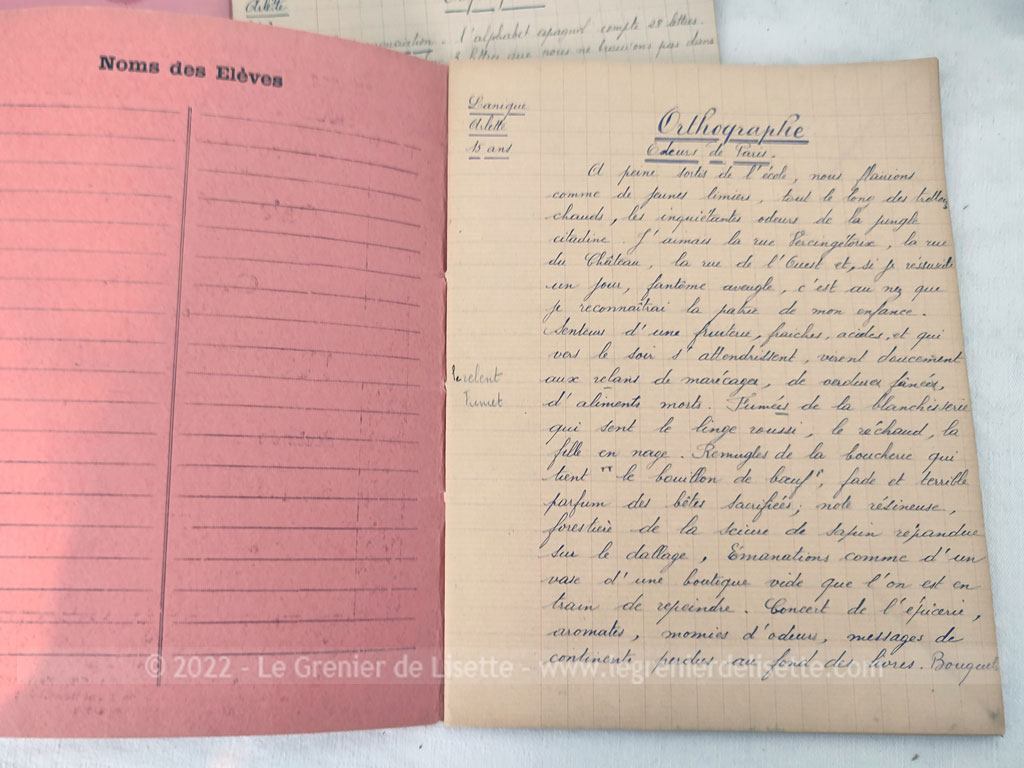 Arlette
l'alphabet espagnol compte 28 lettres.
lettres que nous ne trouvons pas dans
Noms des Elèves
Lanique
Arlette
15 ans
Orthographe
Odeurs de Paris.
A peine sortis de l'école, nous flairions
comme de jeunes limiers, tout le long des trottoirs
chauds, les inquiétantes odeurs de la jungle
citadine. J'aimais la rue Vercingétorix, la rue
du Château, la rue de l'Ouest et, si je ressuscite
un jour, fantôme aveugle, c'est au nez que
je reconnaîtrai la patrie de mon enfance.
Senteurs d'une fruiterie, fraiches, acides, et qui
vers le soir s'attendrissent, virent doucement
aux relans de marécages, de verdures fanées,
d'aliments morts. Fumées de la blanchisserie
qui sent le linge roussi, le réchaud, la
fille en nage. Remugles de la boucherie qui
tient "le bouillon de bœuf", fade et terrible
parfum des bêtes sacrifiées; note résineuse,
forestière de la sciure de sapin répandue
sur le dallage, Émanations comme d'un
vase d'une boutique vide que l'on est en
train de repeindre. Concert de l'épicerie,
aromates, momies d'odeurs, messages de
continents perdus au fond des livres. Bouquet
relent
Fumet
© 2022 - Le Grenier de Lisette - www.legrenierdelisette.com